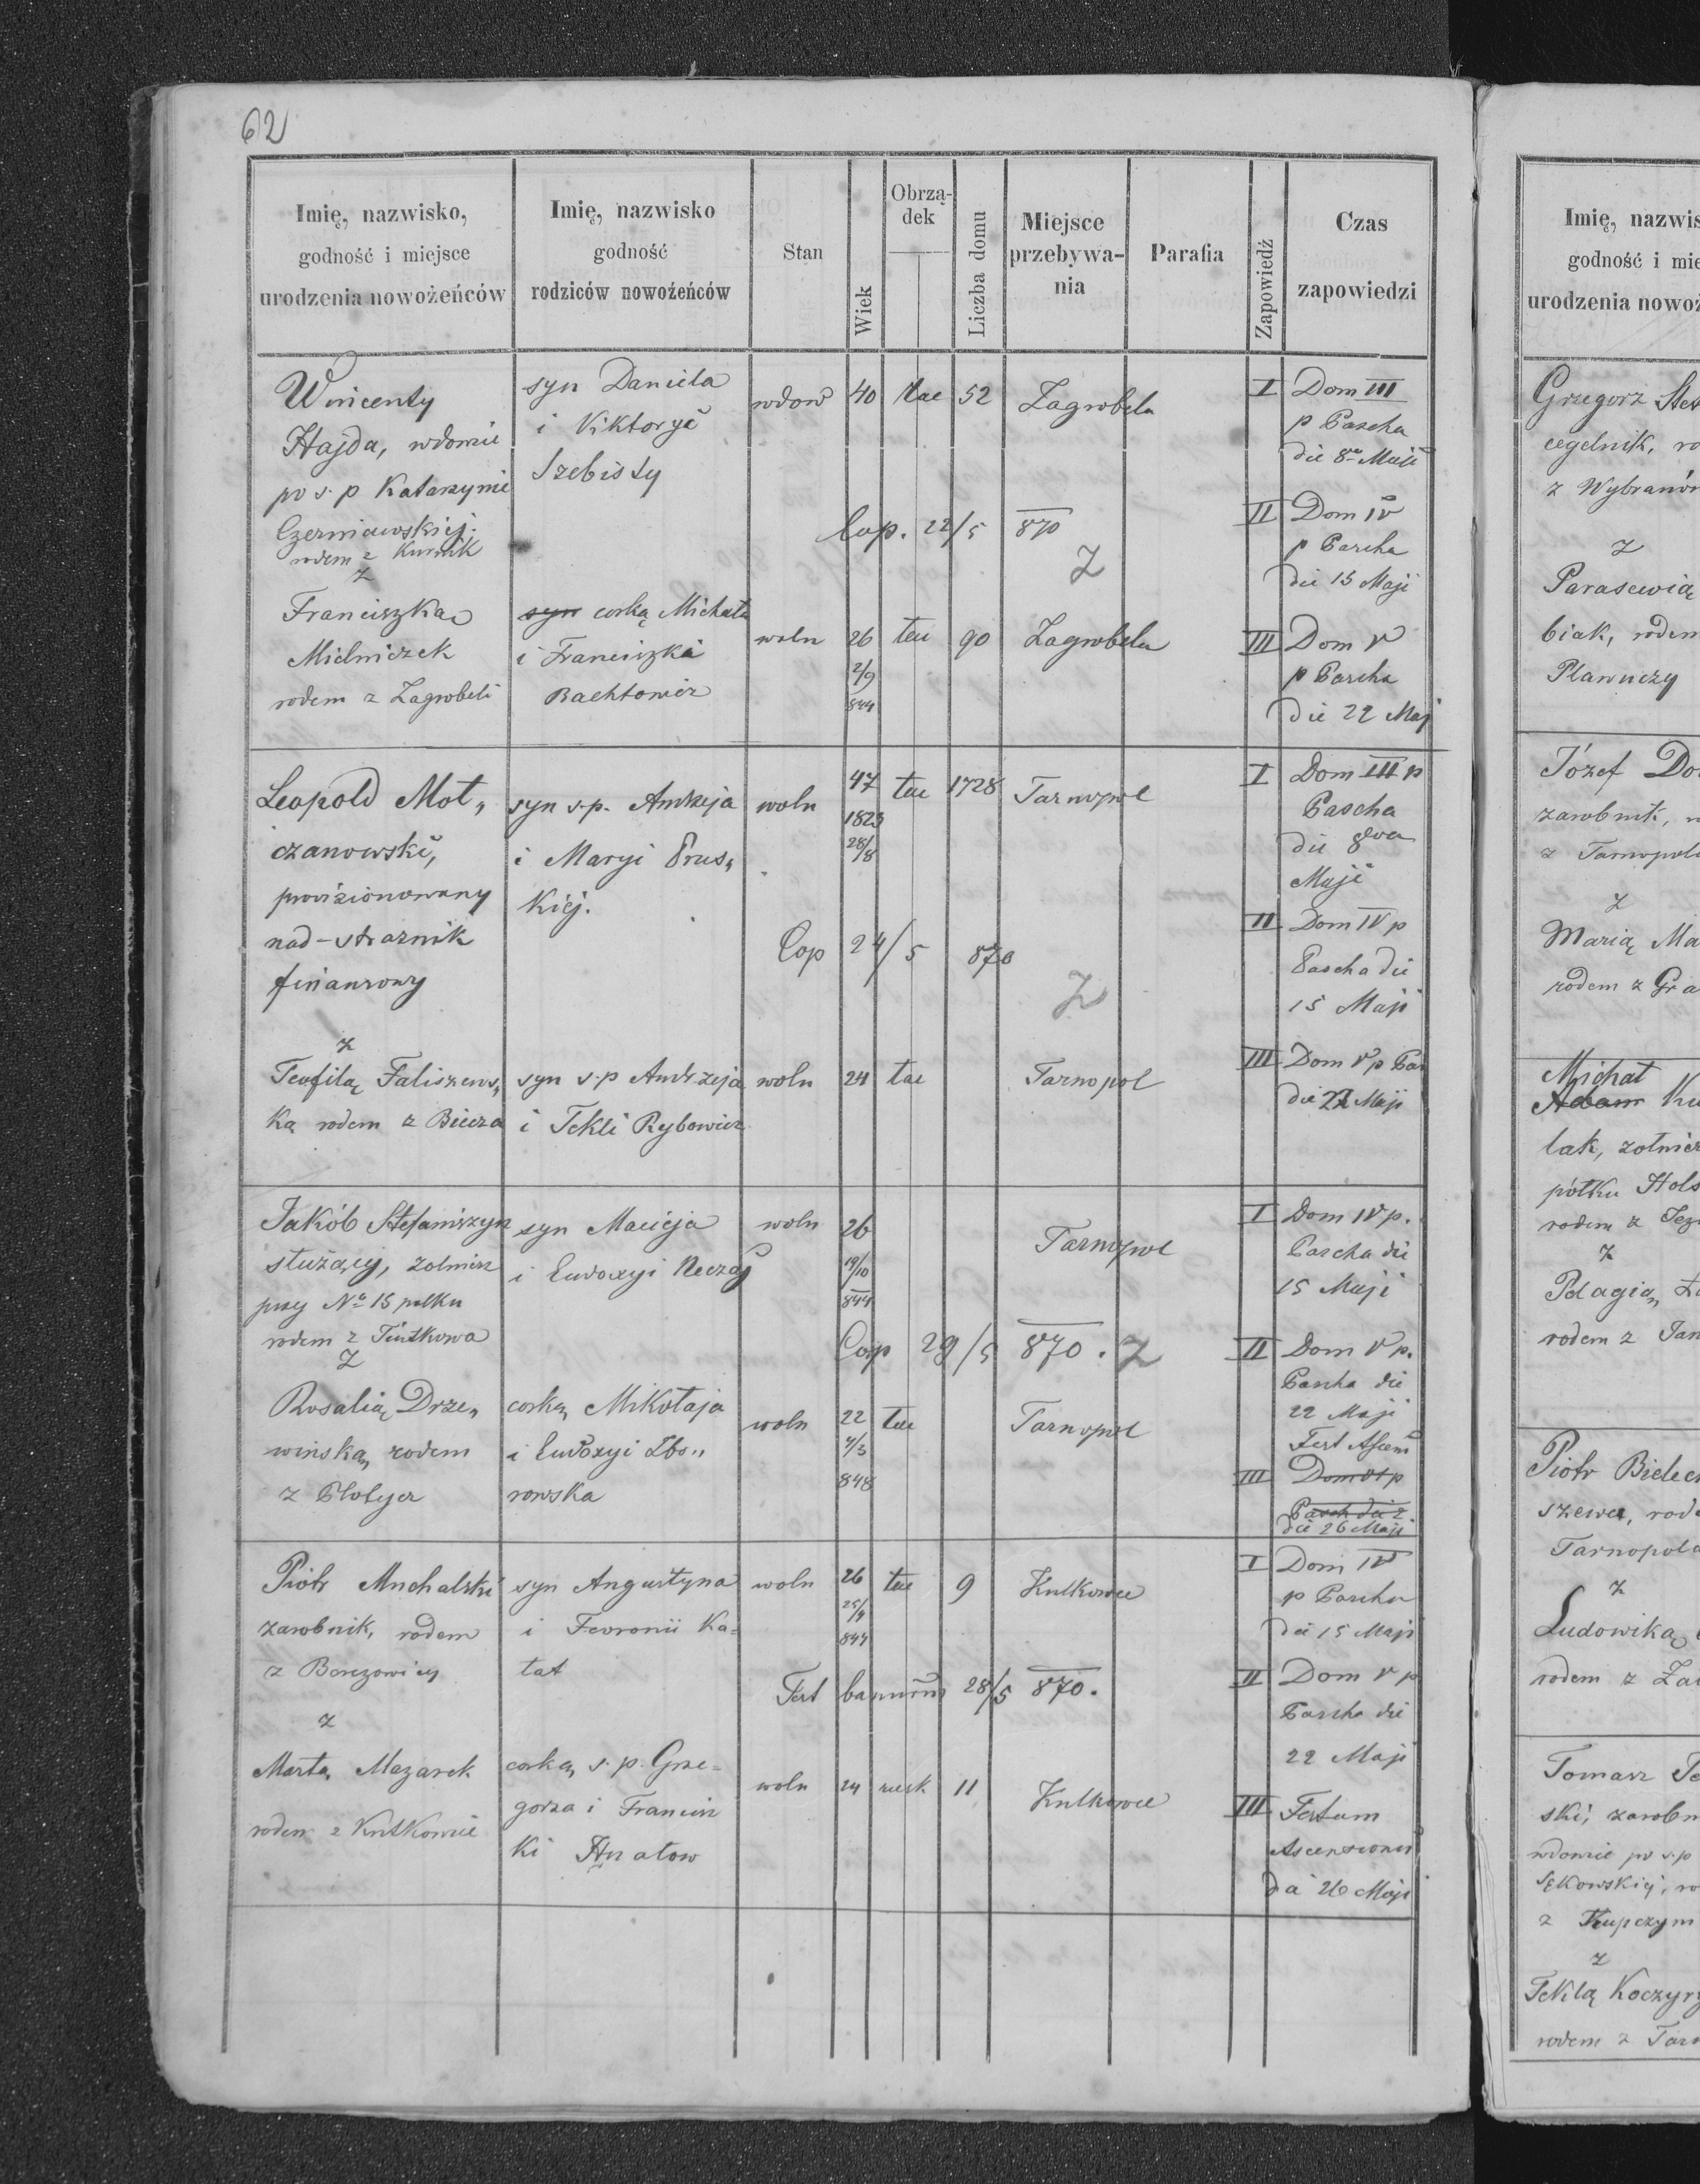 62
Imię, nazwisko,
godność i miejsce
urodzenia nowożeńców
Imię, nazwisko
godność
rodziców nowożeńców
Stan
Wiek
Obrzą-
dek
Liczba domu
Miejsce
przebywa-
nia
Parafia
Zapowiedź
Czas
zapowiedzi
Wincenty
Hajda, wdowie
po s. p Katarzynie
Czerniawskiej.
rodem z Kurnik
z
Franciszką
Mielniczek
rodem z Zagrobeli
syn Daniela
i Viktoryi
Szebisty
syn corką Michała
i Franciszki
Bachtowicz
wdow 40 łac 52 Zagrobela
Cop. 22/5 870
Z
woln 26 łac 90 Zagrobela
2/9
844
I Dom III
p Pascha
die 8va Maji
II Dom IV
p Pascha
die 15 Maji
III Dom V
p Pascha
die 22 Maj
Leopold Mot„
czanowski,
provizionowany
nad-straznik
finansowy
z
Teofilą Faliszews„
ką rodem z Biecza
syn s.p. Andrzeja
i Maryi Prus„
kiej.
syn s.p Andrzeja
i Tekli Rybowicz
woln 47 łac 1728 Tarnopol
1823
28/8
Cop 24/5 870
Z
woln 24 łac Tarnopol
I Dom III p
Pascha
die 8va
Maji
II Dom IV p
Pascha die
15 Maji
III Dom V p Pas
die 22 Maji
Jakób Stefaniszyn
służący, zolnierz
przy No 15 pułku
rodem z
Z
Rosalią Drze„
winską rodem
z Płotycz
syn Macieja
i Eudoxyi Neczaj
corką Mikołaja
i Eudoxyi Zbo„
rowska
woln 26 Tarnopol
19/10
844
Cop 29/5 870. Z
woln 22 łac Tarnopol
4/3
848
I Dom IV p.
Pascha die
15 Maji
II Dom V p.
Pascha die
22 Maji
Fest Ascens
III Dom VI p
Pasch die 2
die 26 Maji
Piotr Muchalski
zarobnik, rodem
z Berezowicy
z
Martą Mazarek
rodem z Kutkowic
syn Augustyna
i Fevronii Ka=
tat
corką s. p. Grze=
gorza i Francisz
ki Hnatow
woln 26 łac 9 Kutkowce
25/4
844
Test bannorum 28/5 870.
woln 24 rusk 11 Kutkowce
I Dom IV
p Pascha
die 15 Maji
II Dom V p
Pascha die
22 Maji
III Festum
Ascensionis
26 Maji
Imię, nazwis
godność i mie
urodzenia nowoż
Grzegorz
cegelnik, ro
z
Z
Parascevią
biak, rodem
Plawuczy
Józef Do
zarobnik,
z Tarnopola
z
Marią Ma
rodem z Gra
Michał
Adam Ku
lak, zołnierz
półku Hols
rodem z Jez
z
Pelagią
rodem z Jan
Piotr Bielec
szewc, rod
Tarnopola
z
Ludowiką
rodem z Za
Tomasz
ski, zarobn
wdowie po s.p
Sękowskiej, ro
z Kupczyn
z
Teklą Koczyr
rodem z Tarn